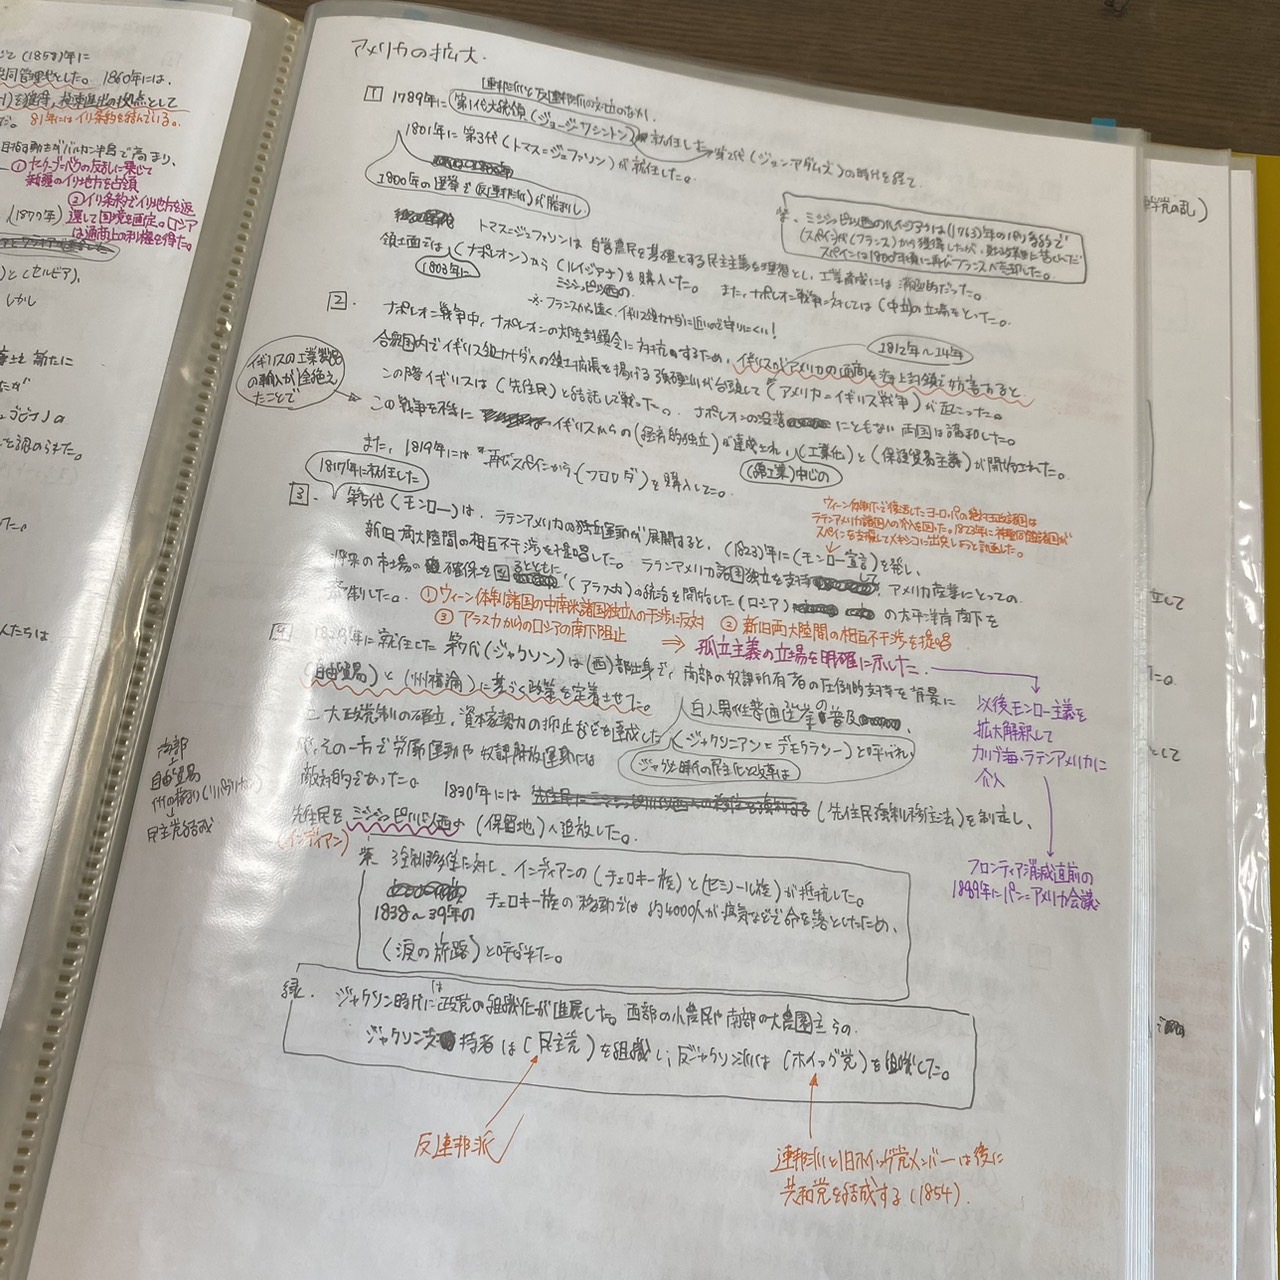 じて(1858)年に
共同管理地とした。1860年には、
を獲得、極東進出の拠点として
81年にはイリ条約を結んでいる。
目指す動きがバルカン半島で高まり、
①ヤークーブ=ベクの反乱に乗じて
新疆のイリ地方を占領
②イリ条約でイリ地方を返
還して国境を画定。ロシア
は通商上の利権を得た。
(1877年)
と(セルビア)、
しかし
新たに
たが
ゴビナ)の
を調のらた。
人たちは
アメリカの拡大.
連邦派と反連邦派の対立のなか、
1 1789年に(第1代大統領(ジョージ=ワシントン)が就任した→第2代(ジョン=アダムズ)の時代を経て、
1801年に第3代(トマス=ジェファソン)が就任した。
1800年の選挙で反(連邦派)が勝利し、
※. ミシシッピ以西のルイジアナは(1763)年のパリ条約で
(スペイン)が(フランス)から獲得したが、財政難に苦しんだ
スペインは1800年頃に再びフランスへ売却した。
トマス=ジェファソンは自営農民を基礎とする民主主義を理想とし、工業育成には消極的だった。
領土面では(ナポレオン)から(ルイジアナ)を購入した。また、ナポレオン戦争に対しては(中立)の立場をとった。
1803年に
ミシシッピ以西の
※フランスから遠く、イギリス領カナダに近いので守りにくい!
2 ナポレオン戦争中、ナポレオンの大陸封鎖令に対抗するため、イギリスがアメリカの通商を海上封鎖で妨害すると
1812年~14年
合衆国内でイギリス領カナダへの領土拡張を掲げる強硬派が台頭して(アメリカ=イギリス戦争)が起こった。
この際イギリスは(先住民)と結託して戦った。ナポレオンの没落にともない両国は講和した。
イギリスの工業製品
の輸入が途絶え
たことで
この戦争を機にイギリスからの(経済的独立)が達成され、(工業化)と(保護貿易主義)が開始された。
(綿工業)中心の
また、1819年には再びスペインから(フロリダ)を購入した。
1817年に就任した
3. 第5代(モンロー)は、ラテンアメリカの独立運動が展開すると、(1823)年に(モンロー宣言)を発し、
ウィーン体制下で復活したヨーロッパの絶対王政諸国は
ラテンアメリカ諸国への介入を図った。1823年に神聖同盟諸国が
スペインを支援してメキシコに出兵しようと計画した。
新旧両大陸間の相互不干渉を提唱した。ラテンアメリカ諸国独立を支持して、アメリカ産業にとっての
将来の市場の確保を図るとともに(アラスカ)の統治を開始した(ロシア)の太平洋岸南下を
牽制した。①ウィーン体制諸国の中南米諸国独立への干渉に反対 ②新旧両大陸間の相互不干渉を提唱
③アラスカからのロシアの南下阻止 ⇒ 孤立主義の立場を明確に示した.
4 1829年に就任した第7代(ジャクソン)は(西)部出身で、南部の奴隷所有者の圧倒的支持を背景に
(自由貿易)と(州権論)に基づく政策を定着させた。
白人男性普通選挙の普及
二大政党制の確立、資本家勢力の抑止などを達成した(ジャクソニアン=デモクラシー)と呼ばれ、
ジャクソン時代の民主化改革は
が、その一方で労働運動や奴隷解放運動には
敵対的であった。1830年には(先住民強制移住法)を制定し、
先住民をミシシッピ川以西の(保留地)へ追放した。
(インディアン)
以後モンロー主義を
拡大解釈して
カリブ海・ラテンアメリカに
介入
フロンティア消滅直前の
1889年にパン=アメリカ会議
南部
自由貿易
民主党結成
※ 強制移住に対し、インディアンの(チェロキー族)と(セミノール族)が抵抗した。
1838~39年のチェロキー族の移動では約4000人が病気などで命を落としたため、
(涙の旅路)と呼ばれた。
縁. ジャクソン時代には政党の組織化が進展した。西部の小農民や南部の大農園主らの
ジャクソン支持者は(民主党)を組織し、反ジャクソン派は(ホイッグ党)を組織した。
反連邦派
連邦派と旧ホイッグ党メンバーは後に
共和党を結成する(1854).
党の乱)
して
た。
として